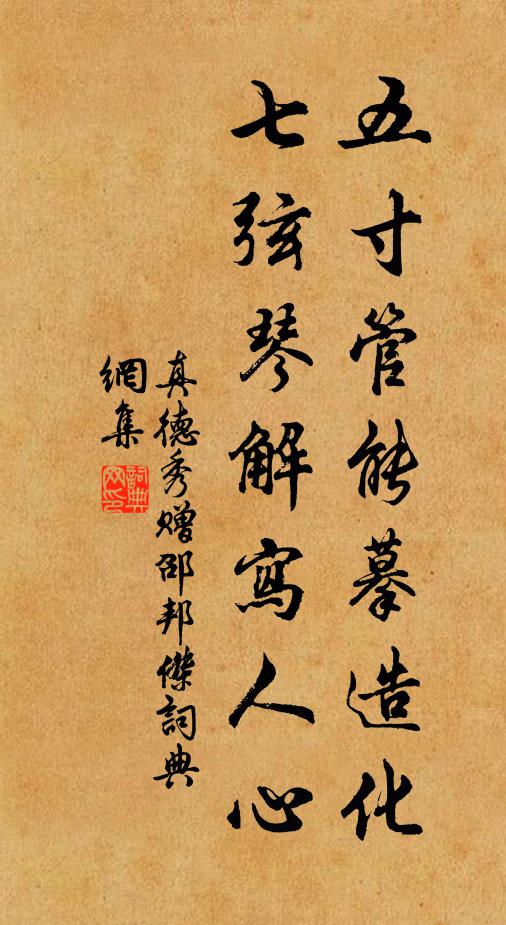 五寸管能摹造化
七弦琴解寫人心
真德秀贈邵邦傑詞典
網集
詞典
网印